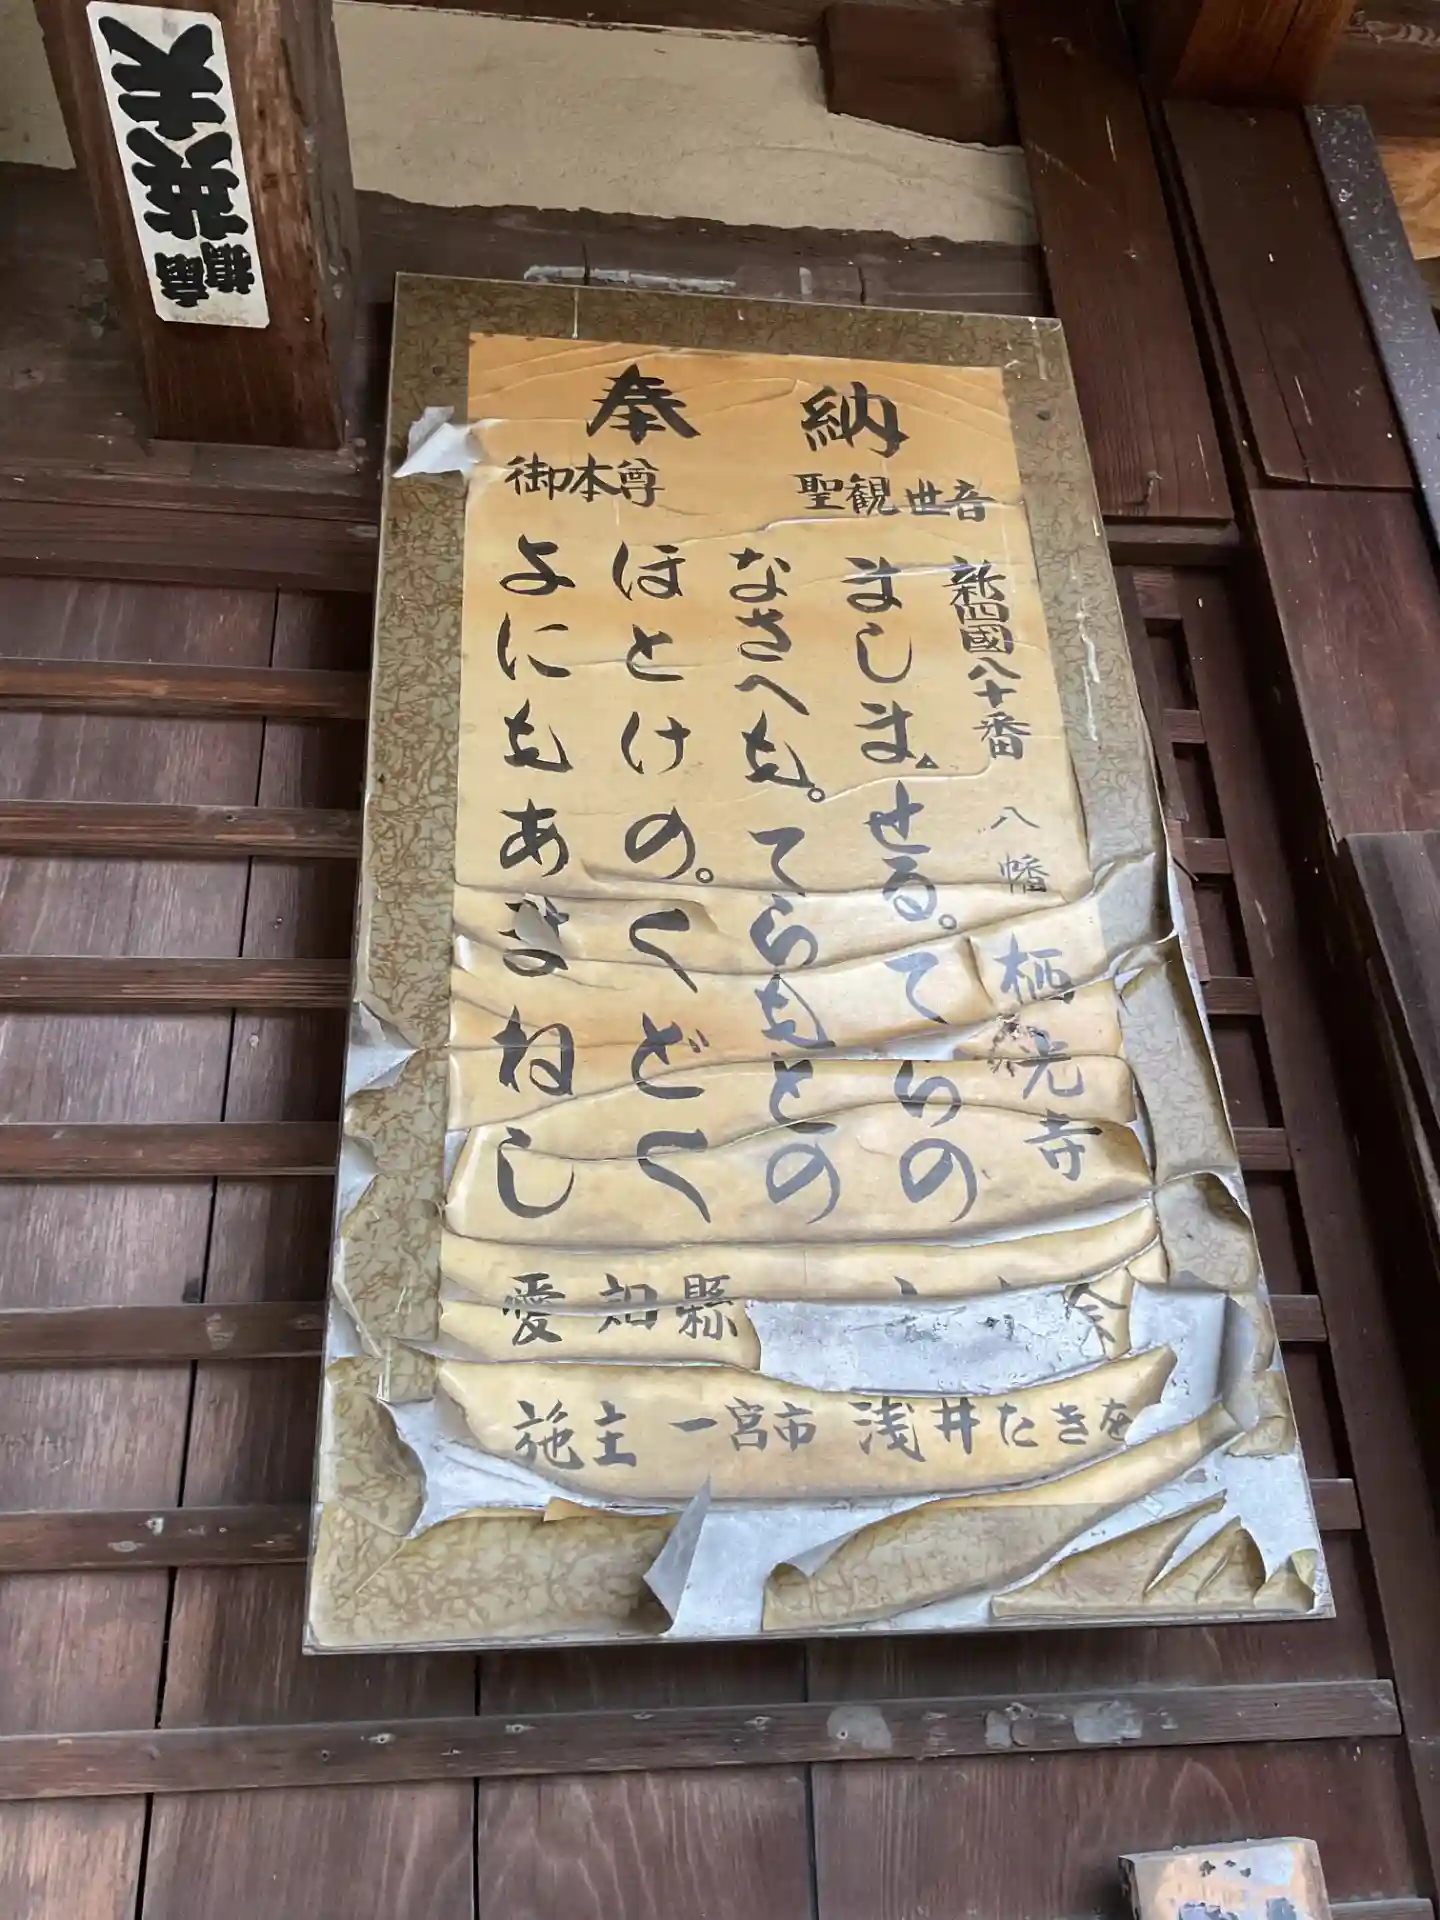 高橋
英夫
奉納
御本尊 聖観世音
新四國八十番 八幡 栖光寺
ましませる。てらの
なさへも。てらもとの
ほとけの。くどく
よにもあまねし
愛知縣
施主 一宮市 浅井たきを